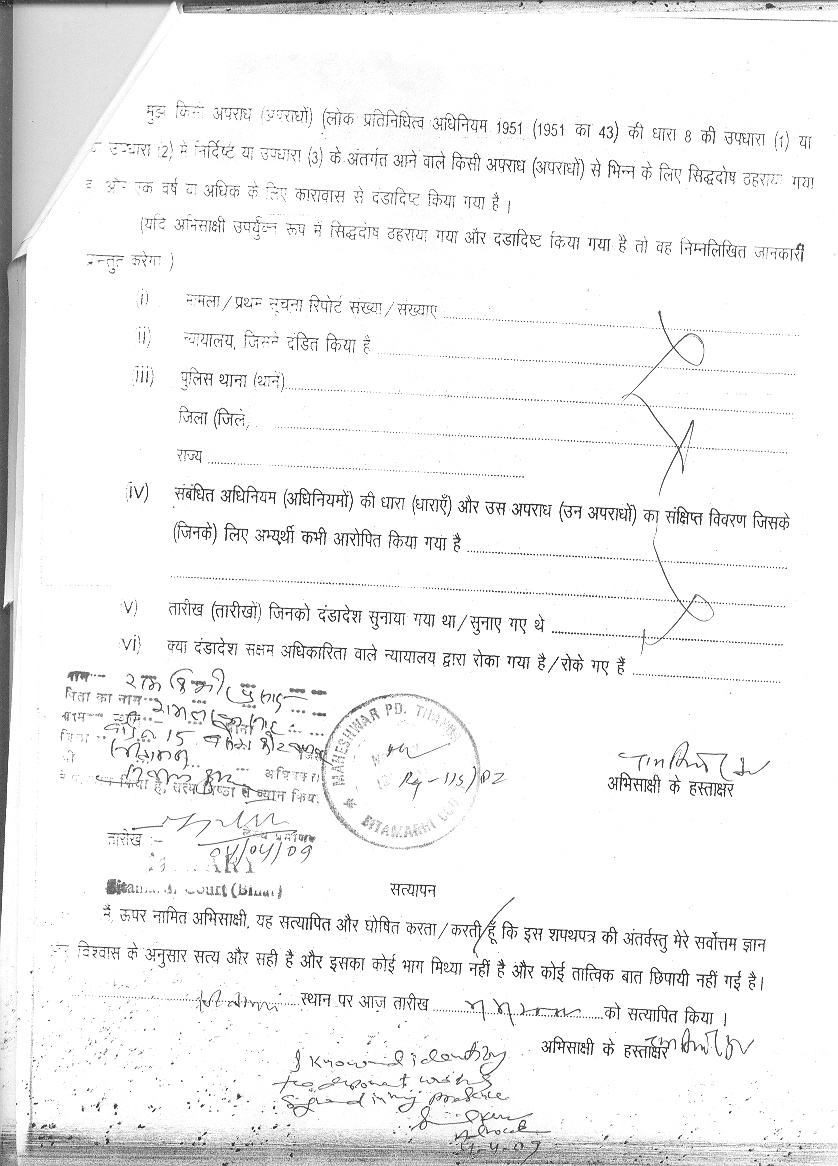 मुझे किसी अपराध (अपराधों) (लोक प्रतिनिधित्व अधिनियम 1951 (1951 का 43) की धारा 8 की उपधारा (1) या
उपधारा (2) में निर्दिष्ट या उपधारा (3) के अंतर्गत आने वाले किसी अपराध (अपराधों) से भिन्न के लिए सिद्धदोष ठहराया गया
और एक वर्ष या अधिक के लिए कारावास से दंडादिष्ट किया गया है ।
(यदि अभिसाक्षी उपर्युक्त रूप में सिद्धदोष ठहराया गया और दंडादिष्ट किया गया है तो वह निम्नलिखित जानकारी
प्रस्तुत करेगा )
i) मामला/प्रथम सूचना रिपोर्ट संख्या/संख्याए
ii) न्यायालय, जिसने दंडित किया है
iii) पुलिस थाना (थाने)
जिला (जिले,
राज्य
iv) संबंधित अधिनियम (अधिनियमों) की धारा (धाराएँ) और उस अपराध (उन अपराधों) का संक्षिप्त विवरण जिसके
(जिनके) लिए अभ्यर्थी कभी आरोपित किया गया है
v) तारीख (तारीखों) जिनको दंडादेश सुनाया गया था/सुनाए गए थे
vi) क्या दंडादेश सक्षम अधिकारिता वाले न्यायालय द्वारा रोका गया है/रोके गए हैं
नाम
पिता का नाम
MAHESHWAR PD.
Rg-115/02
SITAMARHI
अभिसाक्षी के हस्ताक्षर
तारीख :-
04/04/09
Court (Bihar)
सत्यापन
मैं, ऊपर नामित अभिसाक्षी, यह सत्यापित और घोषित करता/करती हूँ कि इस शपथपत्र की अंतर्वस्तु मेरे सर्वोत्तम ज्ञान
विश्वास के अनुसार सत्य और सही है और इसका कोई भाग मिथ्या नहीं है और कोई तात्विक बात छिपायी नहीं गई है।
स्थान पर आज तारीख को सत्यापित किया ।
अभिसाक्षी के हस्ताक्षर
I know and identify
the deponent who has
signed in my presence